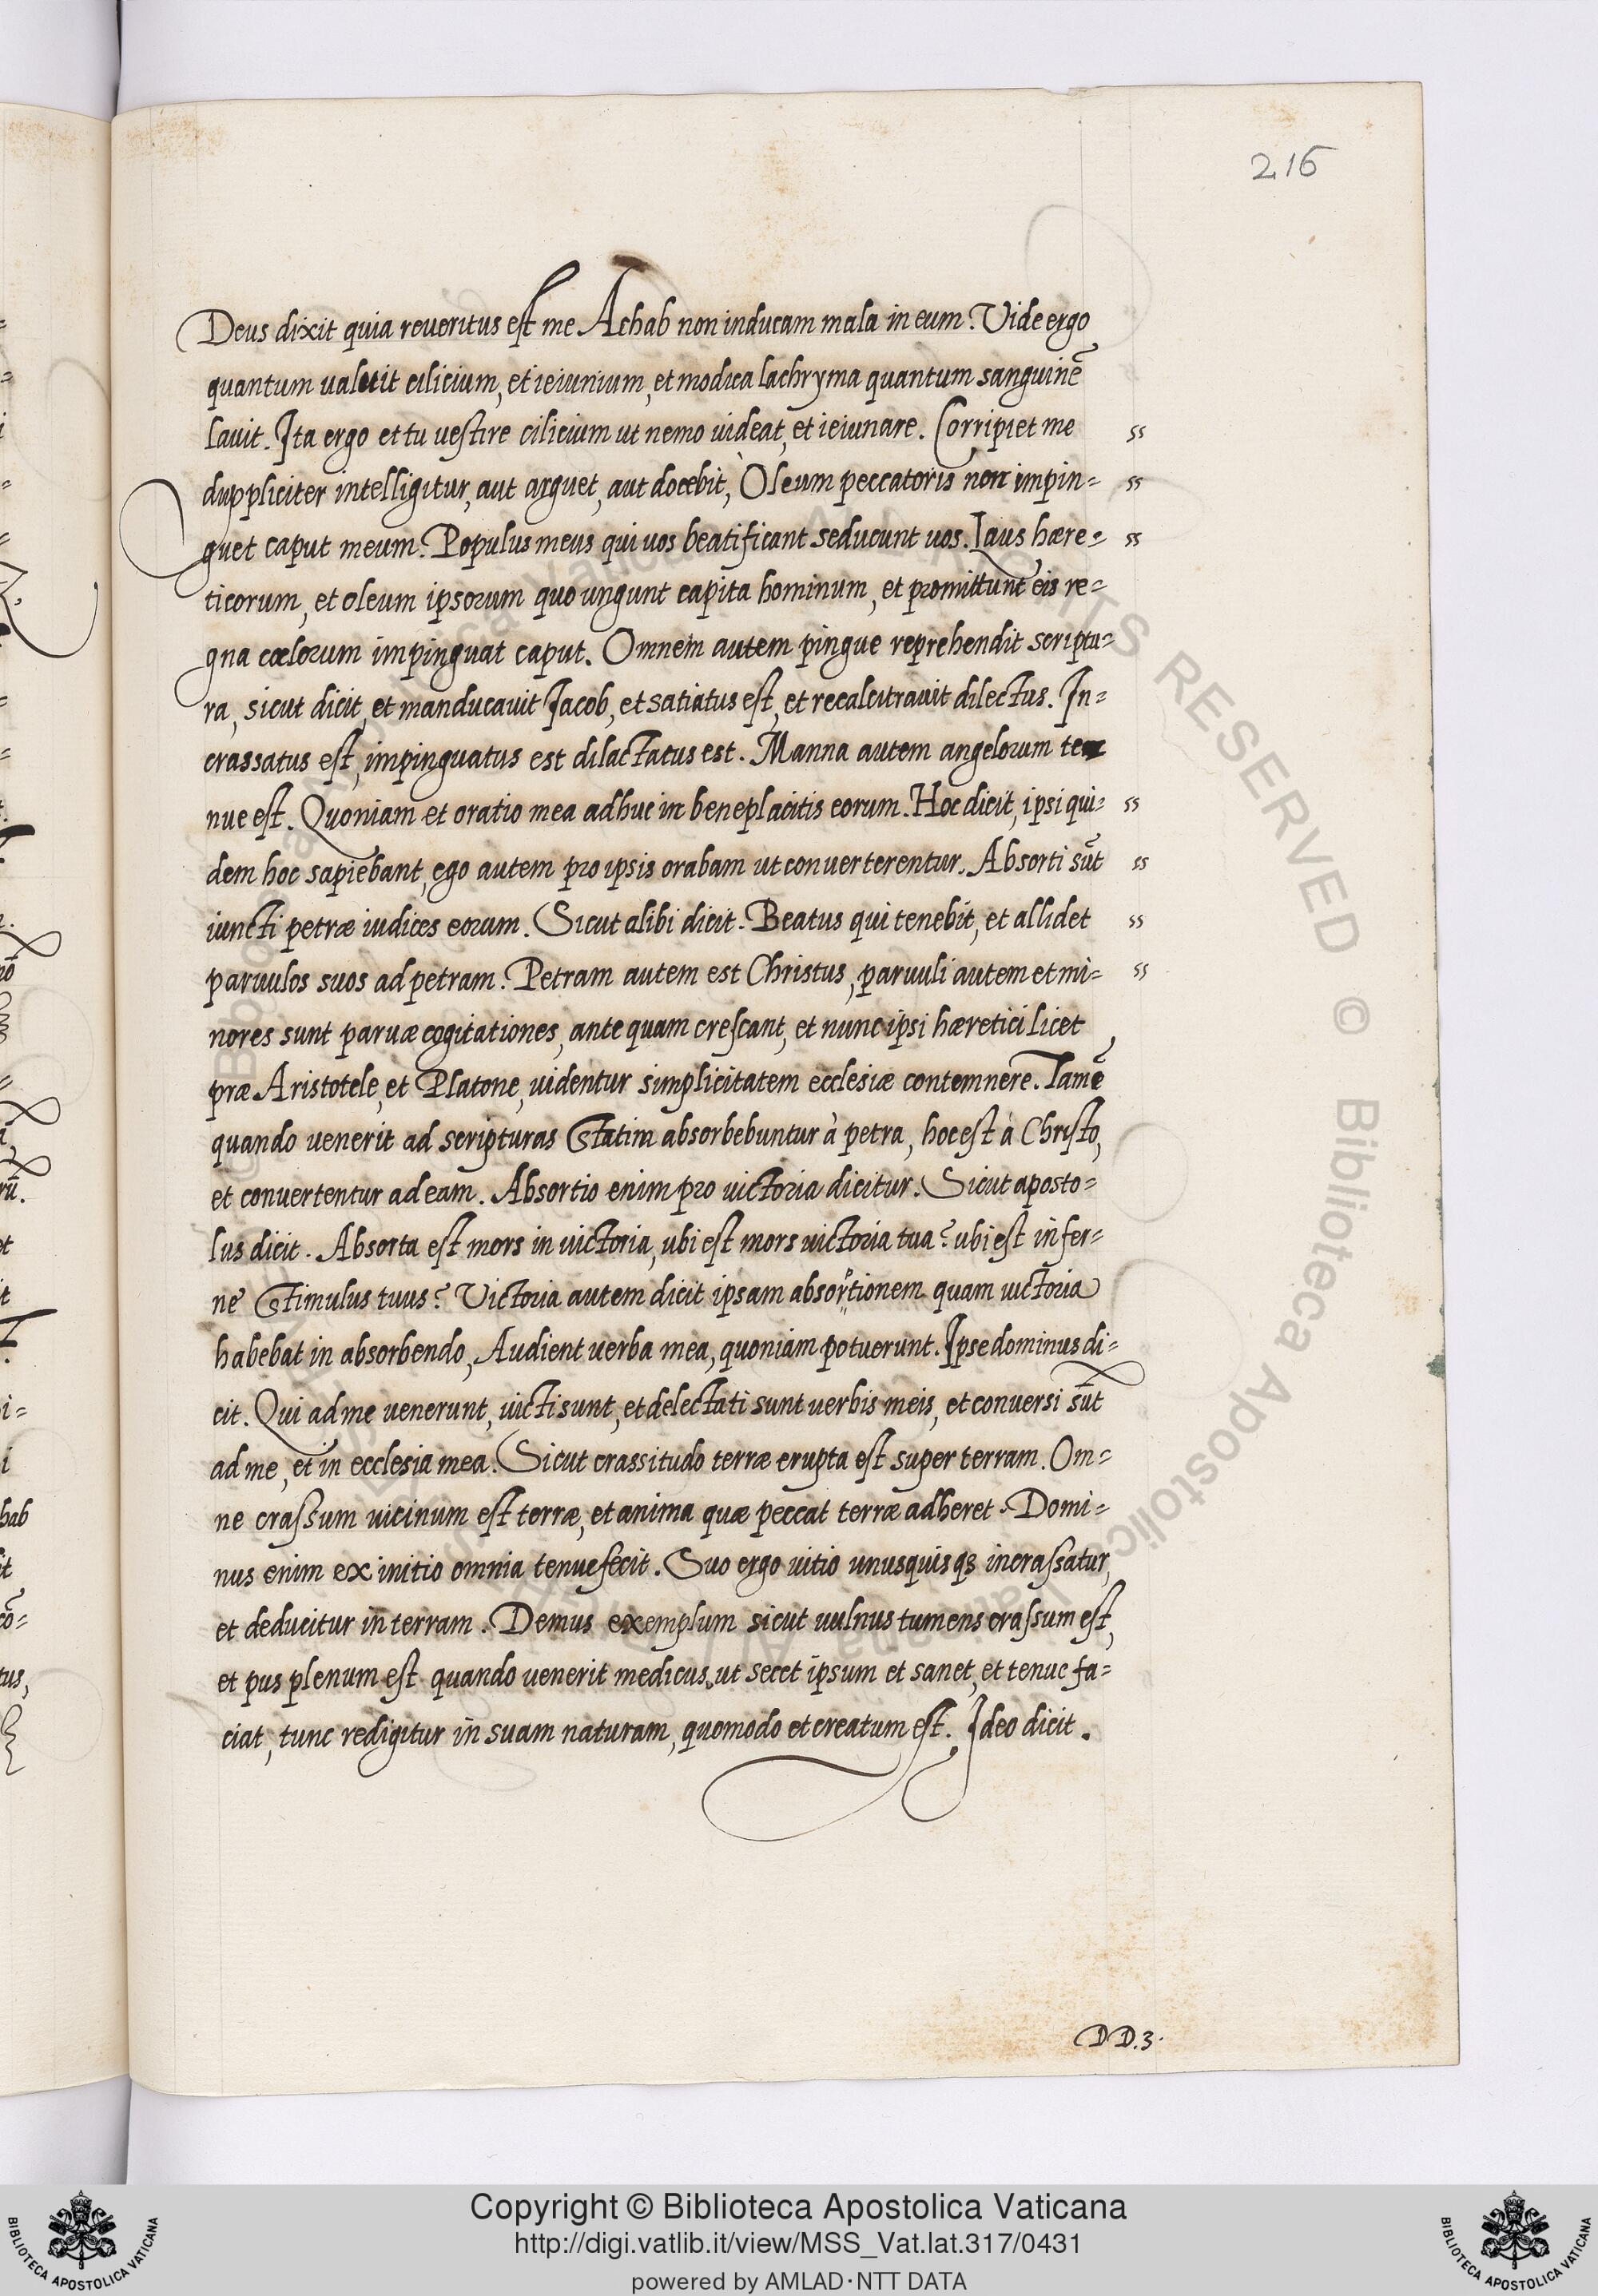 216
Deus dixit quia reueritus est me Achab non inducam mala in eum. Vide ergo
quantum ualuit cilicium, et ieiunium, et modica lachryma quantum sanguinē
lauit. Ita ergo et tu uestire cilicium ut nemo uideat, et ieiunare. Corripiet me ss
duppliciter intelligitur, aut arguet, aut docebit, Oleum peccatoris non impin= ss
guet caput meum. Populus meus qui uos beatificant seducunt uos. Laus hære= ss
ticorum, et oleum ipsorum quo ungunt capita hominum, et promittunt eis re=
gna cœlorum impinguat caput. Omnem autem pingue reprehendit scriptu=
ra, sicut dicit, et manducauit Jacob, et satiatus est, et recalcitrauit dilectus. In=
crassatus est, impinguatus est dilactatus est. Manna autem angelorum te
nue est. Quoniam et oratio mea adhuc in beneplacitis eorum. Hoc dicit, ipsi qui= ss
dem hoc sapiebant, ego autem pro ipsis orabam ut conuerterentur. Absorti sūt ss
iuncti petræ iudices eorum. Sicut alibi dicit. Beatus qui tenebit, et allidet ss
paruulos suos ad petram. Petram autem est Christus, paruuli autem et mi= ss
nores sunt paruæ cogitationes, ante quam crescant, et nunc ipsi hæretici licet
præ Aristotele, et Platone, uidentur simplicitatem ecclesiæ contemnere. Tamē
quando uenerit ad scripturas statim absorbebuntur à petra, hoc est à Christo,
et conuertentur ad eam. Absortio enim pro uictoria dicitur. Sicut aposto=
lus dicit. Absorta est mors in uictoria, ubi est mors uictoria tua? ubi est infer=
ne stimulus tuus? Victoria autem dicit ipsam absorptionem quam uictoria
habebat in absorbendo, Audient uerba mea, quoniam potuerunt. Ipse dominus di=
cit. Qui ad me uenerunt, uicti sunt, et delectati sunt uerbis meis, et conuersi sūt
ad me, et in ecclesia mea. Sicut crassitudo terræ erupta est super terram. Om=
ne crassum uicinum est terræ, et anima quæ peccat terræ adheret. Domi=
nus enim ex initio omnia tenue fecit. Suo ergo uitio unusquisq; incrassatur,
et deducitur in terram. Demus exemplum sicut uulnus tumens crassum est,
et pus plenum est quando uenerit medicus, ut secet ipsum et sanet, et tenue fa=
ciat, tunc redigitur in suam naturam, quomodo et creatum est. Ideo dicit.
DD.3.
Copyright © Biblioteca Apostolica Vaticana
http://digi.vatlib.it/view/MSS_Vat.lat.317/0431
powered by AMLAD·NTT DATA
BIBLIOTECA APOSTOLICA VATICANA
BIBLIOTECA APOSTOLICA VATICANA